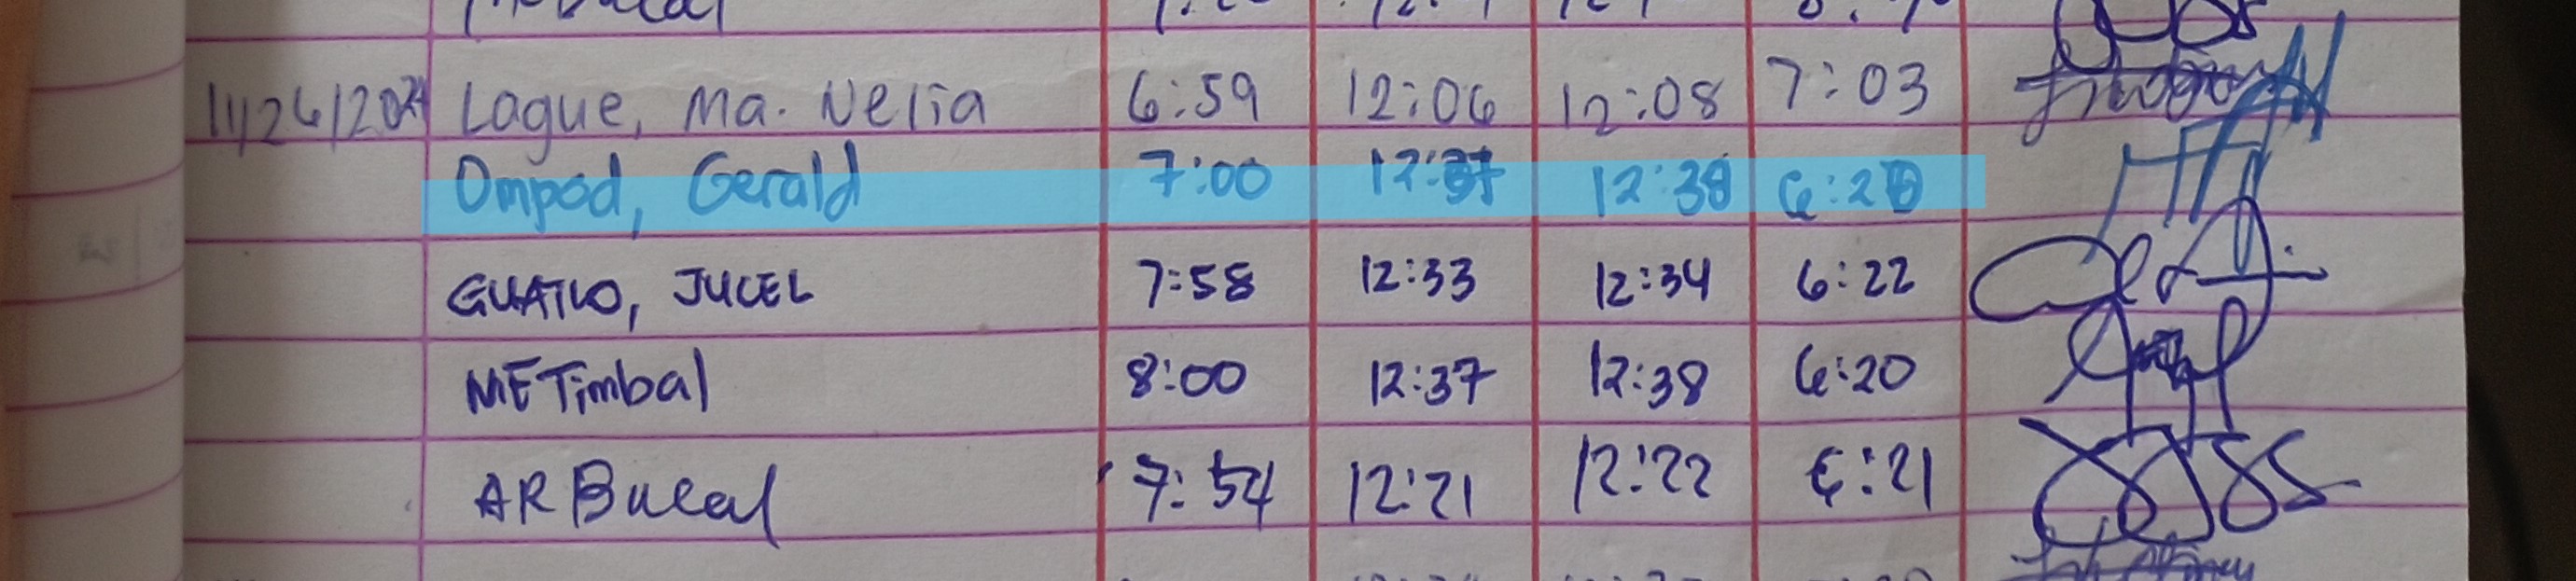 11/26/2024 Lague, Ma. Nelia 6:59 12:06 12:08 7:03
Ompod, Gerald 7:00 12:37 12:38
GUATLO, JUCEL 7:58 12:33 12:34 6:22
METimbal 8:00 12:37 12:38 6:20
AR Bucal 7:54 12:21 12:22 6:21